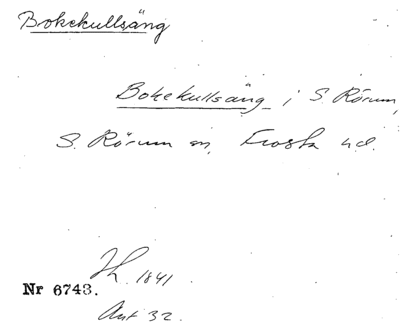 Bokekullsäng
Bokekullsäng i S. Rörum,
S. Rörum sn, Frosta hd.
Jk. 1841
Nr 6743.
Avt 32.